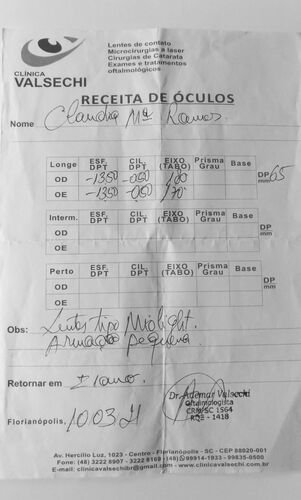 Lentes de contato
Microcirurgias a laser
Cirurgias de Catarata
Exames e tratamentos
oftalmológicos
CLÍNICA
VALSECHI
RECEITA DE ÓCULOS
Nome Claudia Mª Ramos
Longe ESF. DPT CIL. DPT EIXO (TABO) Prisma Grau Base
OD -1350 -050 DP mm 65
OE -1350 -050 170
Interm. ESF. DPT CIL. DPT EIXO (TABO) Prisma Grau Base
OD DP mm
OE
Perto ESF. DPT CIL. DPT EIXO (TABO) Prisma Grau Base
OD DP mm
OE
Obs: Lentes tipo Miolight.
Armação pequena
Retornar em ± 1 ano.
Dr. Ademar Valsechi
Oftalmologista
CRM/SC 1564
RQE - 1418
Florianópolis, 10.03.21
Av. Hercílio Luz, 1023 - Centro - Florianópolis - SC - CEP 88020-001
Fone: (48) 3222 8907 - 3222 8169 (48) 99914-1933 - 99835-0500
E-mail: clinicavalsechi@gmail.com - www.clinicavalsechi.com.br